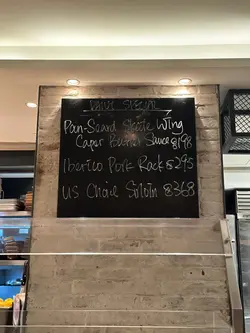 DAILY SPECIAL
Pan-Seard Skate Wing
Caper Butter Sauce @198
Iberico Pork Rack @295
US Choice Sirloin @368